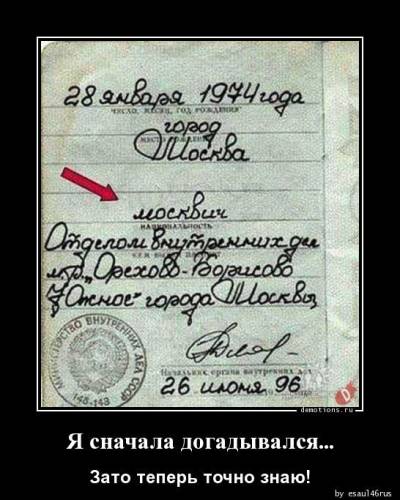 28 января 1974 года
ЧИСЛО, МЕСЯЦ, ГОД РОЖДЕНИЯ
город
МЕСТО РОЖДЕНИЯ
Москва
москвич
НАЦИОНАЛЬНОСТЬ
Отделом внутренних дел
КЕМ ВЫДАН ПАСПОРТ
м-р. „Орехово-Борисово
Южное" города Москвы
ВНУТРЕННИХ ДЕЛ СССР
148-143
Начальник органа внутренних дел
26 июня 96
demotions.ru
Я сначала догадывался...
Зато теперь точно знаю!
by esaul46rus